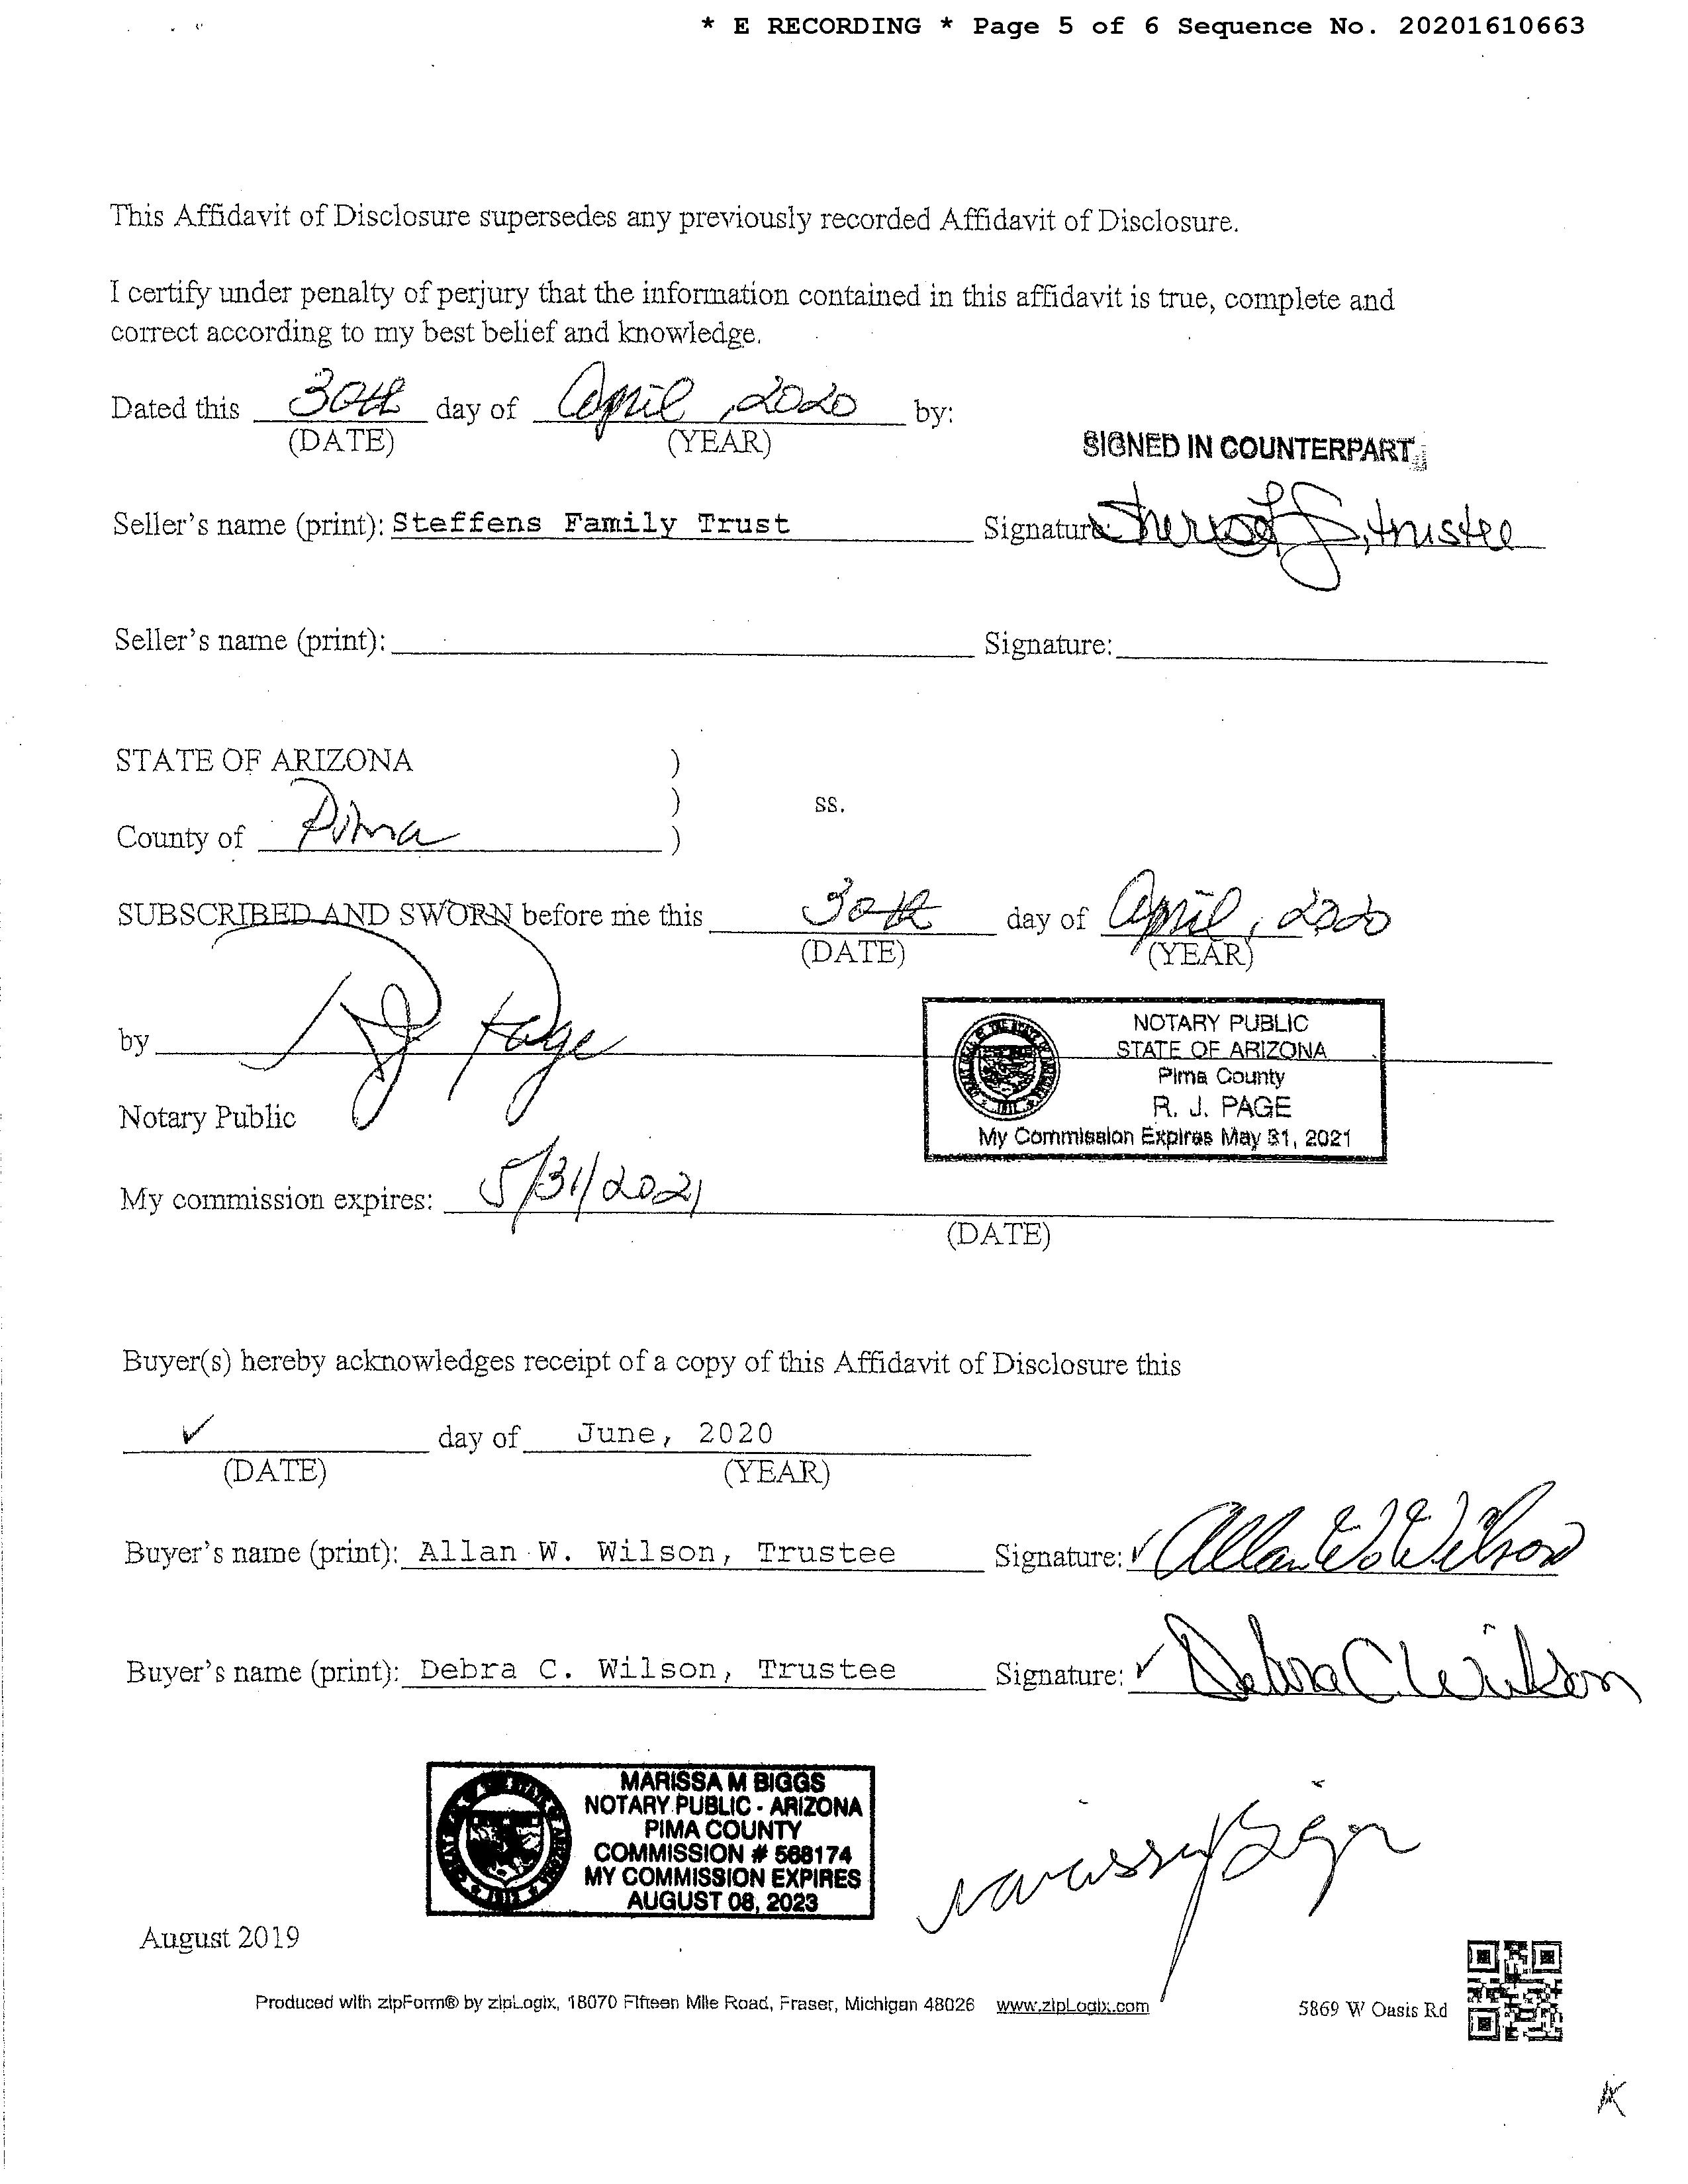 * E RECORDING * Page 5 of 6 Sequence No. 20201610663
This Affidavit of Disclosure supersedes any previously recorded Affidavit of Disclosure.
I certify under penalty of perjury that the information contained in this affidavit is true, complete and
correct according to my best belief and knowledge.
Dated this 30th day of April, 2020 by:
(DATE) (YEAR)
SIGNED IN COUNTERPART
Seller's name (print): Steffens Family Trust Signature: , trustee
Seller's name (print): Signature:
STATE OF ARIZONA )
) ss.
County of Pima )
SUBSCRIBED AND SWORN before me this 30th day of April, 2020
(DATE) (YEAR)
by RJ Page
NOTARY PUBLIC
STATE OF ARIZONA
Pima County
R. J. PAGE
My Commission Expires May 31, 2021
Notary Public
My commission expires: 5/31/2021
(DATE)
Buyer(s) hereby acknowledges receipt of a copy of this Affidavit of Disclosure this
✓ day of June, 2020
(DATE) (YEAR)
Buyer's name (print): Allan W. Wilson, Trustee Signature: ✓ Allan W. Wilson
Buyer's name (print): Debra C. Wilson, Trustee Signature: ✓ Debra C. Wilson
MARISSA M BIGGS
NOTARY PUBLIC - ARIZONA
PIMA COUNTY
COMMISSION # 568174
MY COMMISSION EXPIRES
AUGUST 08, 2023
August 2019
Produced with zipForm® by zipLogix, 18070 Fifteen Mile Road, Fraser, Michigan 48026 www.zipLogix.com
5869 W Oasis Rd